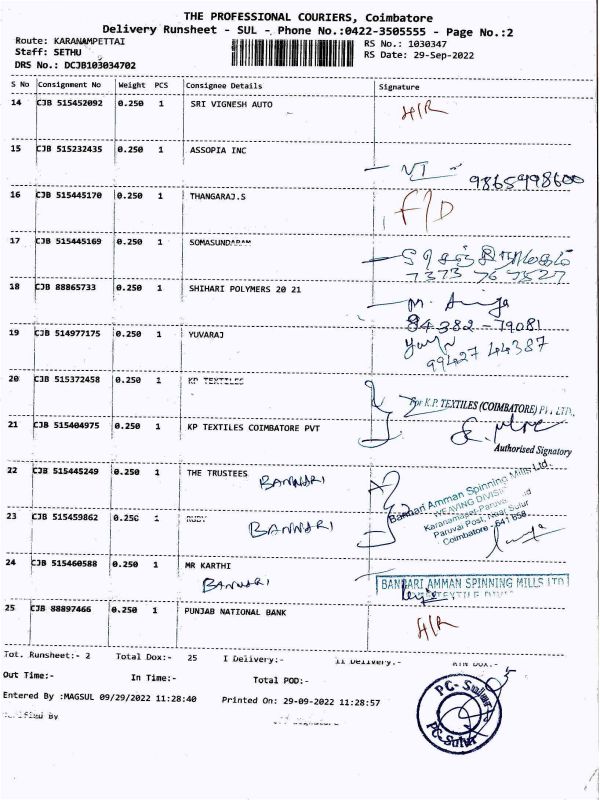 THE PROFESSIONAL COURIERS, Coimbatore
Delivery Runsheet - SUL - Phone No.:0422-3505555 - Page No.:2
Route: KARANAMPETTAI RS No.: 1030347
Staff: SETHU RS Date: 29-Sep-2022
DRS No.: DCJB103034702
S No Consignment No Weight PCS Consignee Details Signature
14 CJB 515452092 0.250 1 SRI VIGNESH AUTO H/R
15 CJB 515232435 0.250 1 ASSOPIA INC
9865998600
16 CJB 515445170 0.250 1 THANGARAJ.S F/D
17 CJB 515445169 0.250 1 SOMASUNDARAM
7373 76 7527
18 CJB 88865733 0.250 1 SHIHARI POLYMERS 20 21
94382-79081
19 CJB 514977175 0.250 1 YUVARAJ
99427 44387
20 CJB 515372458 0.250 1 KP TEXTILES
For K.P. TEXTILES (COIMBATORE) PVT. LTD.,
21 CJB 515404975 0.250 1 KP TEXTILES COIMBATORE PVT
Authorised Signatory
22 CJB 515445249 0.250 1 THE TRUSTEES BANNARI
Bannari Amman Spinning Mills Ltd.
WEAVING DIVISION
23 CJB 515459862 0.250 1 RUBY BANNARI
Paruvai Post, Sulur
Coimbatore - 641 658.
24 CJB 515460588 0.250 1 MR KARTHI
BANNARI
BANNARI AMMAN SPINNING MILLS LTD
25 CJB 88897466 0.250 1 PUNJAB NATIONAL BANK H/R
Tot. Runsheet:- 2 Total Dox:- 25 I Delivery:- II Delivery:- RTN Dox:- 5
Out Time:- In Time:- Total POD:-
Entered By :MAGSUL 09/29/2022 11:28:40 Printed On: 29-09-2022 11:28:57
Verified By Off Signature
PC-Sulur
PC-Sulur